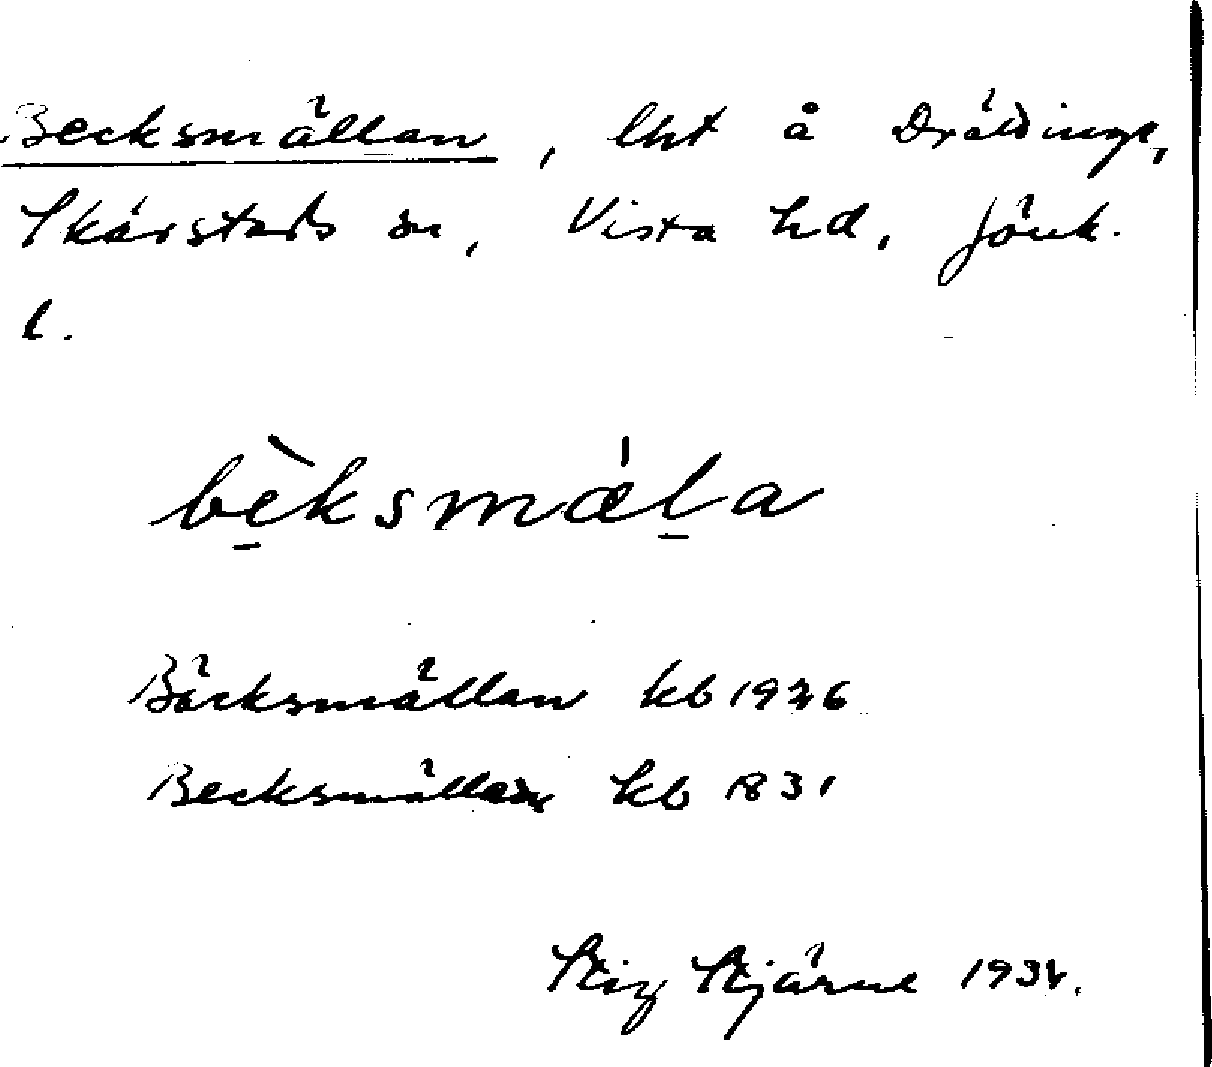 Becksmällan, lht å Drältinge,
Skärstads sn, Vista hd, Jönk.
l.
bèksmæla
Bäcksmällan kb 1926
Becksmällan kb 1831
Stig Stjärne 1934.